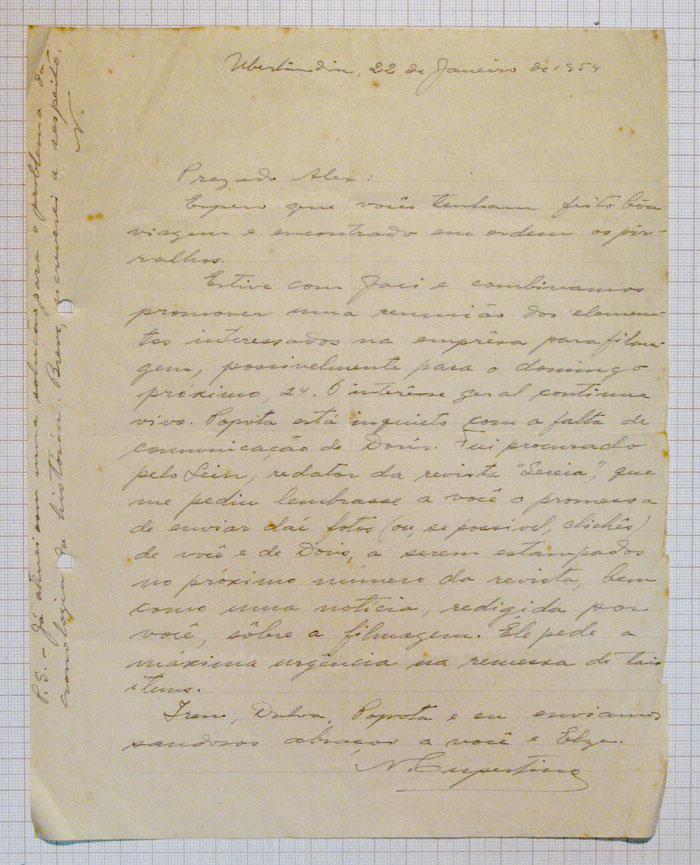 Uberlândia, 22 de Janeiro de 1954
Prezado Alex:
Espero que vocês tenham feito bôa
viagem e encontrado em ordem os pir-
ralhos.
Estive com Jaci e combinamos
promover uma reunião dos elemen-
tos interessados na emprêsa para filma-
gem, possivelmente para o domingo
próximo, 24. O interêsse geral continua
vivo. Popota está inquieto com a falta de
comunicação de Doris. Fui procurado
pelo redator da revista "Sereia", que
me pediu lembrasse a você a promessa
de enviar daí fotos (ou, se possível, clichês)
de você e de Doris, a serem estampados
no próximo número da revista, bem
como uma notícia, redigida por
você, sôbre a filmagem. Ele pede a
máxima urgência na remessa de tais
itens.
Irene, Dulva, Popota e eu enviamos
saudosos abraços a você e Elza.
N. Cupertino
P.S. - Já atinei com uma solução para o problema da
cronologia da história. Breve, escreverei a respeito.
N.